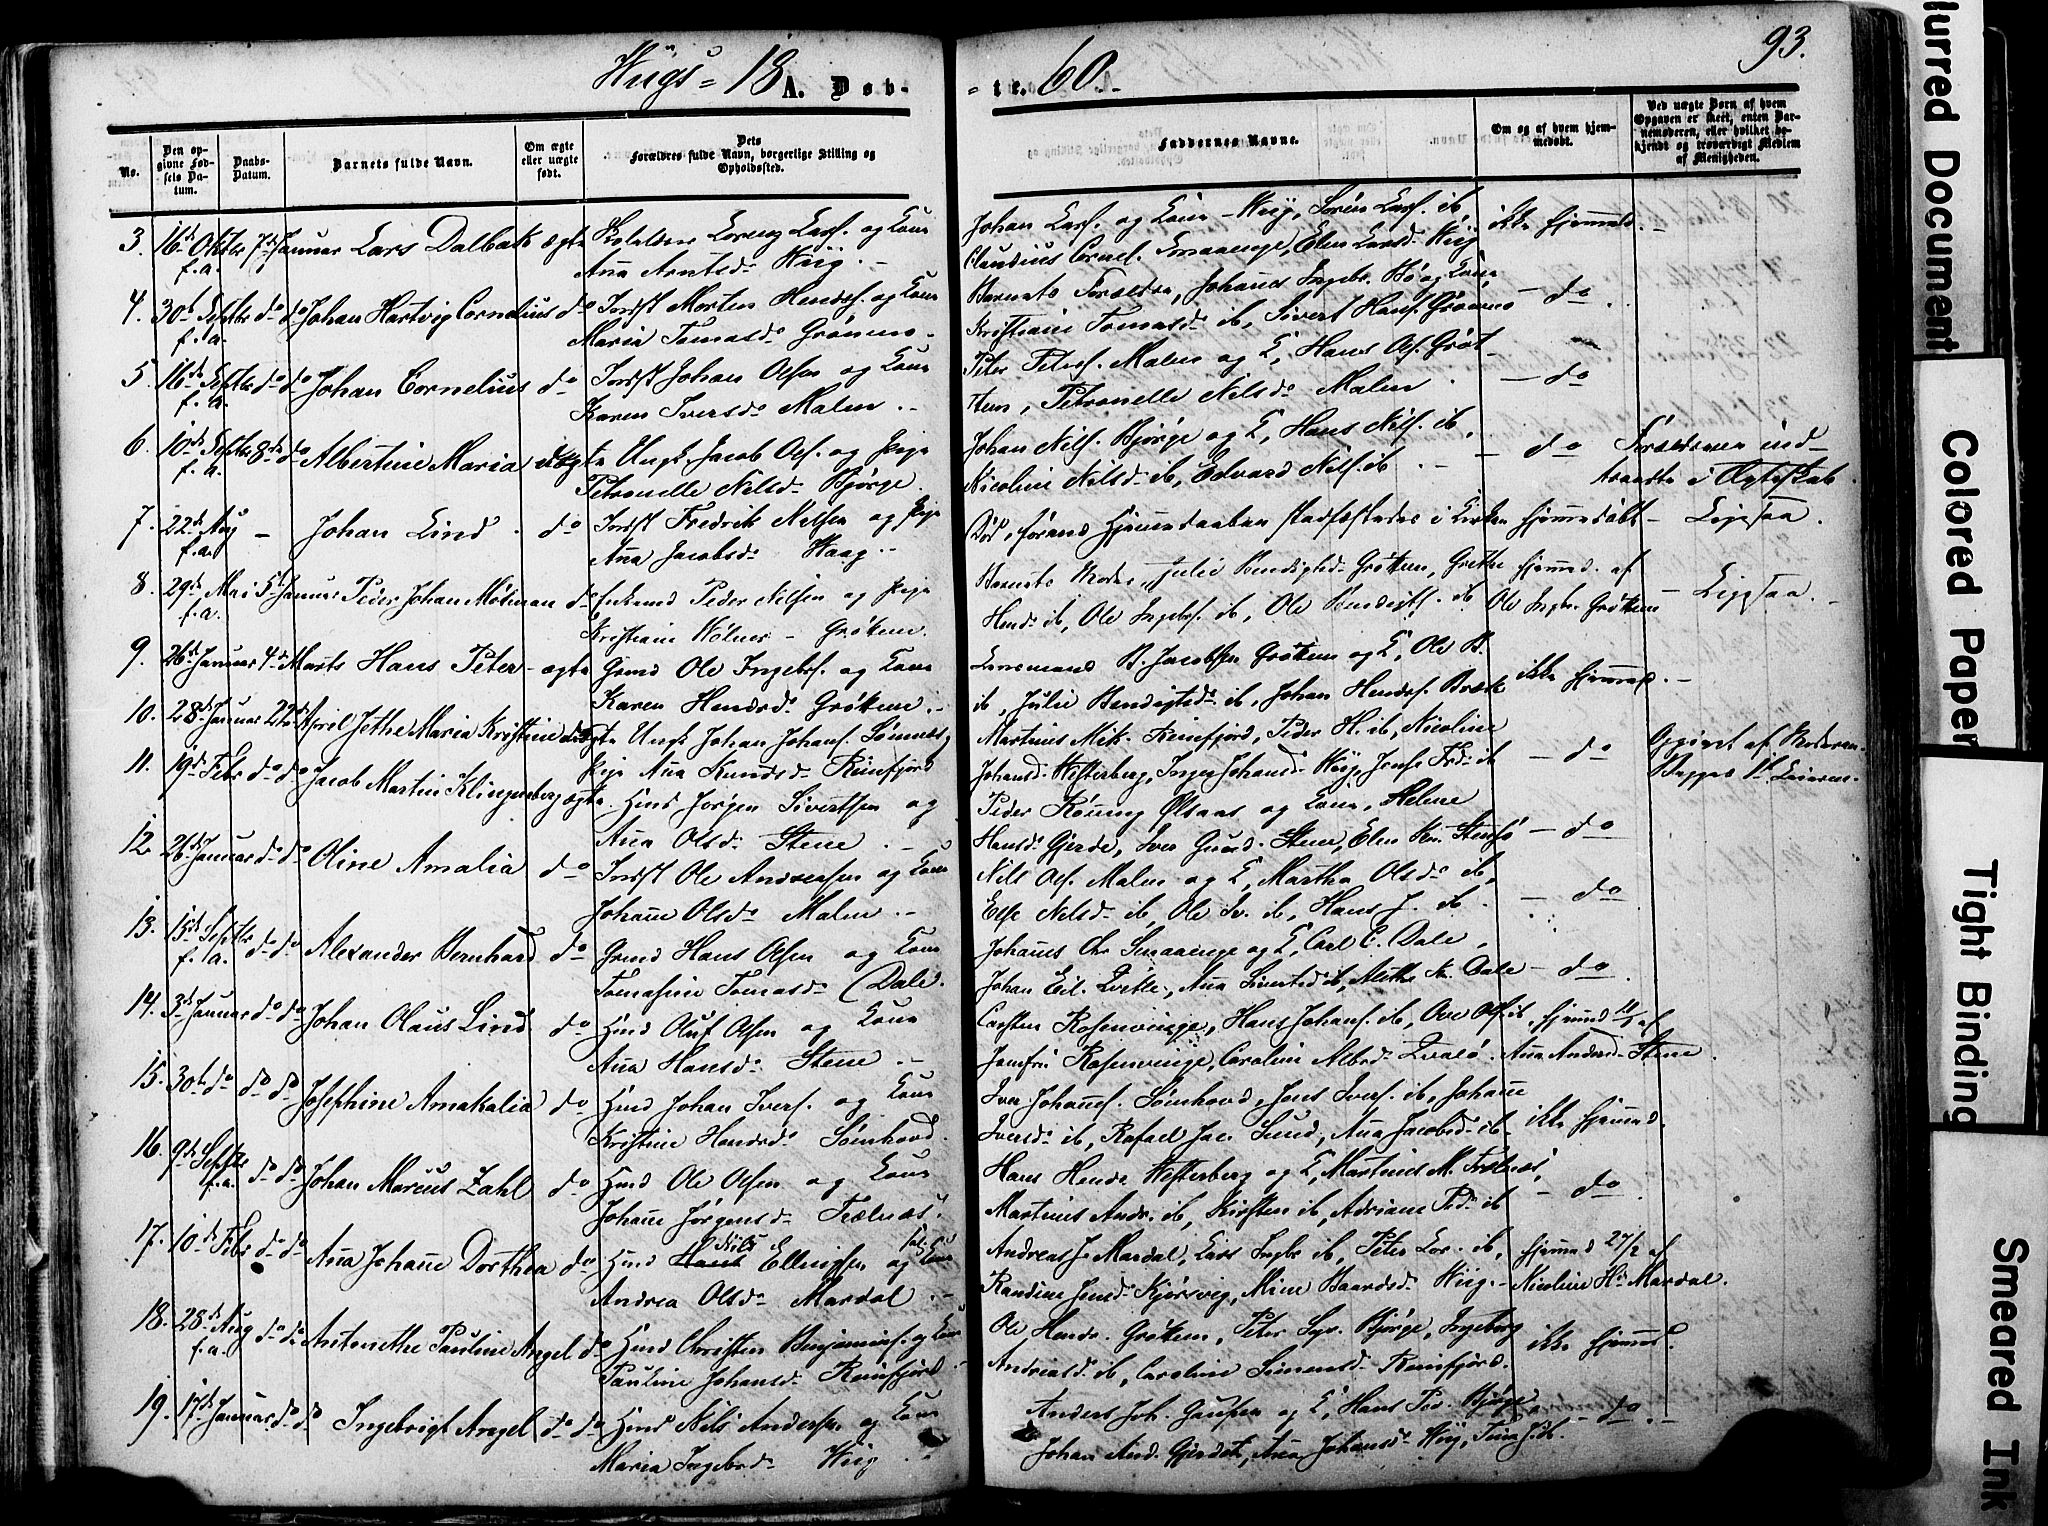 Wiigs = 18 A. Døb-
= te. 60.
93.
No.
Den op-
givne Fød-
sels Da-
tum.
Daabs-
Datum.
Barnets fulde Navn.
Om ægte
eller uægte
født.
Dets
Forældres fulde Navn, borgerlige Stilling og
Opholdssted.
Faddernes Navne.
Om og af hvem hjem-
medøbt.
Ved uægte Børn af hvem
Opgaven er skeet, enten Bar-
nemoderen, eller hvilket be-
kjendt og troværdigt Medlem
af Menigheden.
3. 16de Oktbr f. a. 7de Januar Lars Dalbak ægte Lorenz Larss. og Kone
Ana Arntsd. Wiig.
Johan Larss. og Kone Wiig, Søren Larss. ib
Claudius Cornel. Smaaenge, Elen Larsd. Wiig
ikke hjemmed.
4. 30te Septbr f. a. do do Johan Hartvig Cornelius do Indst Morten Hendrs. og Kone
Maria Tomasd. Grønmo.
Barnets Forældre, Johanes Ingebr. Bø og Kone,
Kristiane Tomasd. ib, Sivert Hans. Grønmo
do
5. 16de Septbr f. a. do do Johan Cornelius do Indst Johan Olsen og Kone
Karen Iversd. Malen.
Peter Peters. Malen og K, Hans Ols. Grøt-
tem, Petronelle Nilsd. Malen.
do
6. 10de Septbr f. a. 8de do Albertine Maria uægte Ungk. Jacob Ols. og Pige
Petronelle Nilsd. Bjørge.
Johan Nils. Bjørge og K, Hans Nils. ib,
Nicoline Nilsd. ib, Edvard Nils. ib
do
Forældrene ind-
traadte i Ægteskab.
7. 22de Aug f. a. - Johan Lind. do Indst Fredrik Nilsen og Pige
Ana Jacobsd. Waag.
Død, førend Hjemmedaaben stadfæstedes i Kirken
hjemmedøbt
8. 29de Mai f. a. 5te Januar Peder Johan do Enkemd Peder Nilsen og Pige
Kristiane - Grøttem.
Barnets Moder, Julie Bendigtsd. Grøttem, Grethe
Hend. ib, Ole Ingebr. ib, Ole Bendigts. ib
hjemmed. af
Ole Ingbr. Grøttem
9. 26de Januar 4de Marts Hans Peter - ægte Grmd Ole Ingebrs. og Kone
Karen Hendrd. Grøttem.
Lensmand B. Jacobsen Grøttem og K, Ole B.
ib, Julie Bendigtsd. ib, Johan Hends. Bræk
ikke hjemmed.
10. 28de Januar 22de April Jethe Maria Kristine uægte Ungk Johan Johans. Sømnæs,
Pige Ana Knudsd. Reinfjord
Martinus Mik. Reinfjord, Peder H. ib, Nicoline
Johansd. Westerberg, Inger Johansd. Wiig,
do
Opgivet af Moderen.
11. 19de Febr do do Jacob Martin Klingenberg ægte. Hmd Jørgen Sivertsen og
Ana Olsd. Stene.
Peder Rønning Ølsaas og Kone, Helene
Hansd. Gjerde, Iver Gund. Stene, Elen
do
12. 26de Januar do do Oline Amalia do Indst Ole Andersen og Kone
Johane Olsd. Malen.
Nils Ols. Malen og K, Martha Olsd. ib,
Else Nilsd. ib, Ole Iv. ib, Hans J. ib.
do
13. 15de Septbr f. a. do do Alexander Bernhard do Grmd Hans Olsen og Kone
Tomasine Tomasd. (Dale.
Johanes Chr Smaaenge og K, Carl C. Dale,
Johan Eil. Ana Sivertsd ib, Alethe Dale
do.
14. 3de Januar do do Johan Olaus Lind do Hmd Oluf Olsen og Kone
Ana Hansd. Stene.
Carsten Rosenvinge, Hans Johans. ib, Ove Ols. ib
Jomfru Rosenvinge, Caroline Albrd.
hjemmd af
Ana Andr. Stene.
15. 30te do do do Josephine Amakalia do Hmd Johan Ivers. og Kone
Kristine Hendrd. Sømhovd.
Iver Johans. Sømhovd, Jens Ivers. ib, Johane
Iversd. ib, Rafael Jac. Sund, Ana Jacobsd. ib
ikke hjemmed.
16. 9de Septbr f.a. do do Johan Marcus Zahl do Hmd Ole Olsen og Kone
Johane Jørgensd. Trælnæs.
Hans Hendr Westerberg og K, Martinus M. Trælnæs,
Martinus Andr. ib, Kirsten ib, Adriane Ped. ib
do
17. 10de Febr do do Ana Johane Dorthea do Hmd Nils Ellingsen og Kone
Andrea Olsd. Mardal.
Andreas J. Mardal, Lars Ingbr ib, Peter Lor. ib,
Randine Jensd. Kjørsvig, Mine Baardsd. Wiig.
hjemmd 27/2 af
Nicoline H. Mardal.
18. 28de Aug f.a. do do Antonethe Pauline Angel do Hmd Christen Benjamins. og Kone
Pauline Johansd. Reinfjord.
Ole Hendr. Grøttem, Peter Syv. Bjørge, Ingeborg
Andreasd. ib, Caroline Simonsd. Reinfjord.
ikke hjemmd.
19. 17de Januar do do Ingebrigt Angel do Hmd Nils Andersen og Kone
Maria Ingebrd. Wiig
Anders Joh. og K, Hans Ped. Bjørge
Johan And. Gjerdet, Ana Johansd. Wiig,
do
Blurred Document
Colored Paper
Tight Binding
Smeared Ink